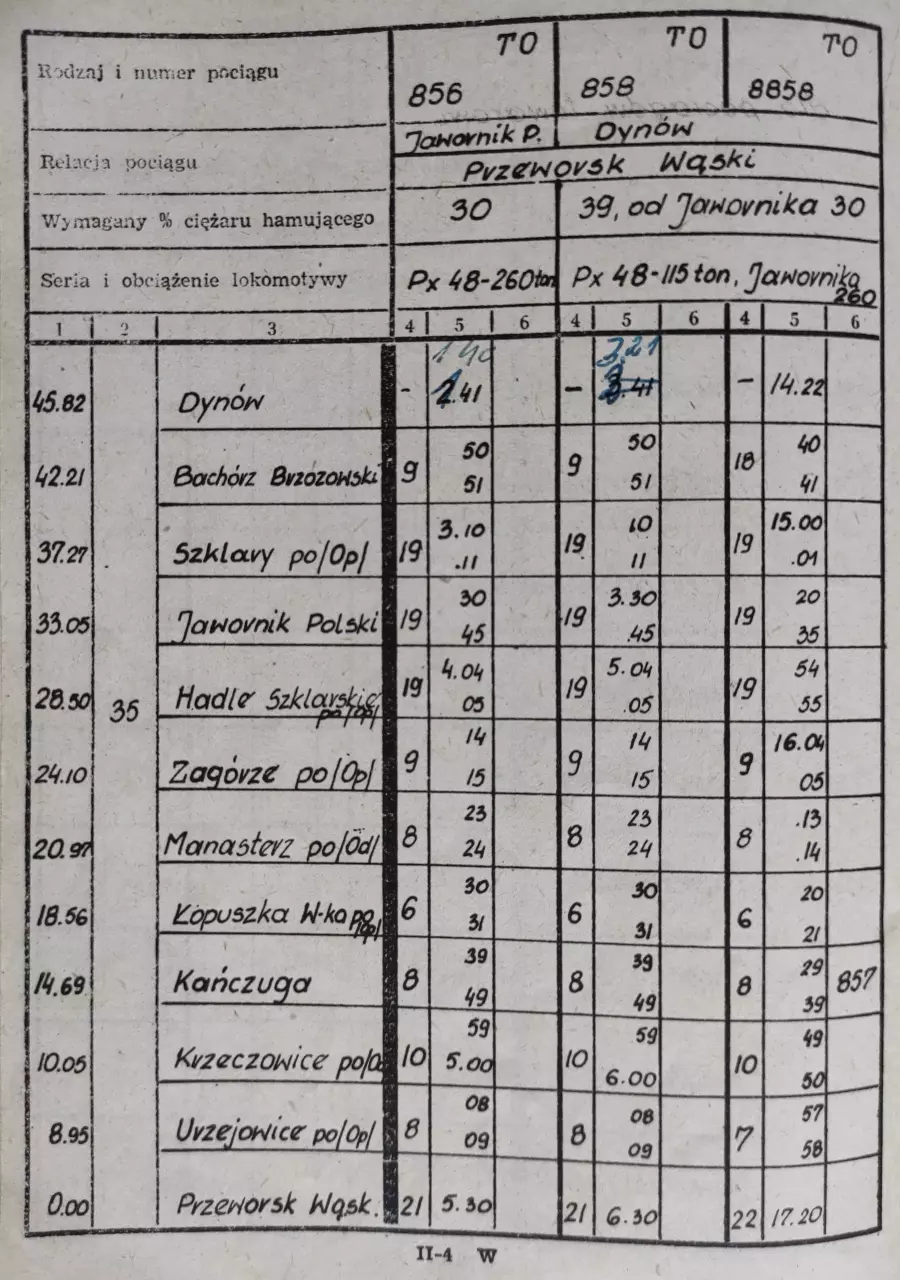 Rodzaj i numer pociągu TO 856 TO 858 TO 8858
Relacja pociągu Jawornik P. Dynów
Przeworsk Wąski
Wymagany % ciężaru hamującego 30 39, od Jawornika 30
Seria i obciążenie lokomotywy Px 48-260ton Px 48-115 ton, Jawornika 260
1 2 3 4 5 6 4 5 6 4 5 6
1 40 3.21
45.82 Dynów - 2.41 - 3.41 - 14.22
50 50 40
42.21 Bachórz Brzozowski 9 51 9 51 18 41
3.10 10 15.00
37.27 Szklary po/Op/ 19 .11 19 11 19 .01
30 3.30 20
33.05 Jawornik Polski 19 45 19 .45 19 35
4.04 5.04 54
28.50 35 Hadle Szklarskie po/Op/ 19 05 19 .05 19 55
14 14 16.04
24.10 Zagórze po/Op/ 9 15 9 15 9 05
23 23 .13
20.97 Manasterz po/Od/ 8 24 8 24 8 .14
30 30 20
18.56 Łopuszka W-ka po/Op/ 6 31 6 31 6 21
39 39 29
14.69 Kańczuga 8 49 8 49 8 39 857
59 59 49
10.05 Krzeczowice po/O 10 5.00 10 6.00 10 50
08 08 57
8.95 Urzejowice po/Op/ 8 09 8 09 7 58
0.00 Przeworsk Wąsk. 21 5.30 21 6.30 22 17.20
II-4 W